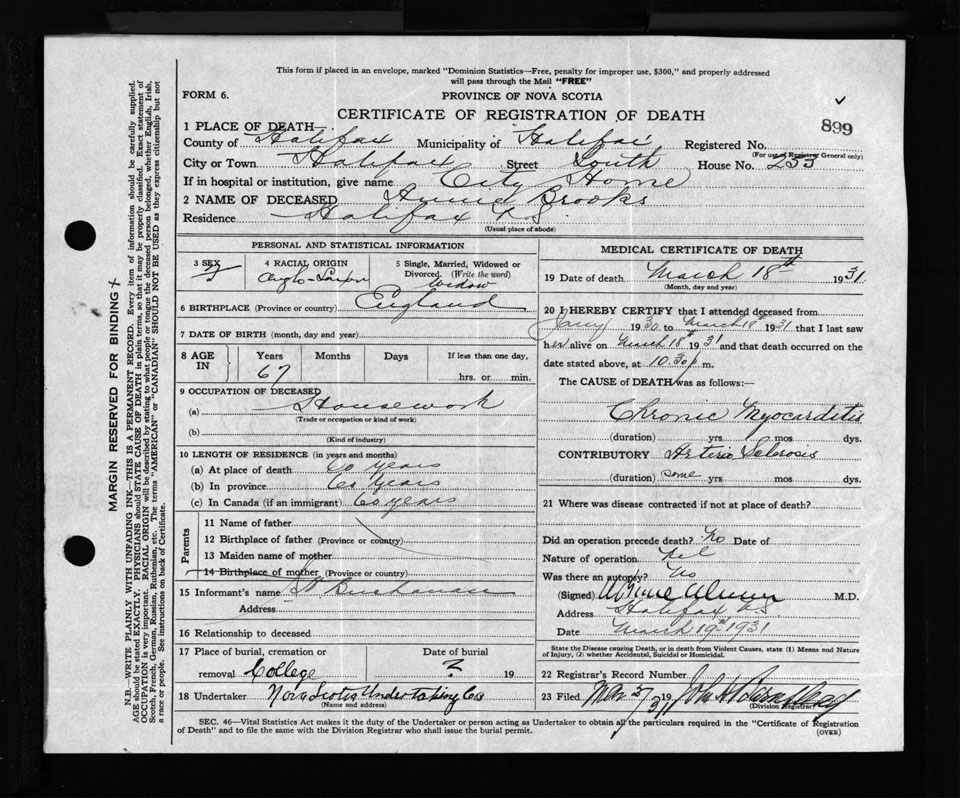 This form if placed in an envelope, marked "Dominion Statistics—Free, penalty for improper use, $300," and properly addressed
will pass through the Mail "FREE"
FORM 6. PROVINCE OF NOVA SCOTIA
CERTIFICATE OF REGISTRATION OF DEATH
899
1 PLACE OF DEATH—
County of Halifax Municipality of Halifax Registered No.
(For use of Registrar General only)
City or Town Halifax Street South House No. 235
If in hospital or institution, give name City Home
2 NAME OF DECEASED Annie Brooks
Residence Halifax N.S.
(Usual place of abode)
PERSONAL AND STATISTICAL INFORMATION
3 SEX 4 RACIAL ORIGIN 5 Single, Married, Widowed or
Divorced. (Write the word)
Anglo-Saxon Widow
6 BIRTHPLACE (Province or country) England
7 DATE OF BIRTH (month, day and year)
8 AGE IN Years Months Days If less than one day,
67 hrs. or min.
9 OCCUPATION OF DECEASED
(a) Housework
(Trade or occupation or kind of work)
(b)
(Kind of industry)
10 LENGTH OF RESIDENCE (in years and months)
(a) At place of death 60 years
(b) In province 60 years
(c) In Canada (if an immigrant) 60 years
Parents
11 Name of father
12 Birthplace of father (Province or country)
13 Maiden name of mother
14 Birthplace of mother (Province or country)
15 Informant's name Buchanan
Address
16 Relationship to deceased
17 Place of burial, cremation or Date of burial
removal College ? 19
18 Undertaker Nova Scotia Undertaking Co
(Name and address)
MEDICAL CERTIFICATE OF DEATH
19 Date of death March 18th 1931
(Month, day and year)
20 I HEREBY CERTIFY that I attended deceased from
Jany 1930 to March 18 1931 that I last saw
her alive on March 18th 1931 and that death occurred on the
date stated above, at 10.30 p.m.
The CAUSE of DEATH was as follows:—
Chronic Myocarditis
(duration) yrs mos dys.
CONTRIBUTORY Arterio Sclerosis
(duration) some yrs. mos dys.
21 Where was disease contracted if not at place of death?
Did an operation precede death? No Date of
Nature of operation Nil
Was there an autopsy? No
(Signed) M.D.
Address Halifax NS
Date March 19th 1931
State the Disease causing Death, or in death from Violent Causes, state (1) Means and Nature
of Injury, (2) whether Accidental, Suicidal or Homicidal.
22 Registrar's Record Number
23 Filed Mar 19
(Division Registrar)
SEC. 46—Vital Statistics Act makes it the duty of the Undertaker or person acting as Undertaker to obtain all the particulars required in the "Certificate of Registration
of Death" and to file the same with the Division Registrar who shall issue the burial permit.
(OVER)
MARGIN RESERVED FOR BINDING
N.B.—WRITE PLAINLY WITH UNFADING INK—THIS IS A PERMANENT RECORD. Every item of information should be carefully supplied.
AGE should be stated EXACTLY. PHYSICIANS should STATE CAUSE OF DEATH in plain terms, so that it may be properly classified. Exact statement of
OCCUPATION is very important. RACIAL ORIGIN will be described by stating to what people or tongue the deceased person belonged, whether English, Irish,
Scotch, French, German, Russian, Ruthenian, etc. The terms "AMERICAN" or "CANADIAN" SHOULD NOT BE USED as they express citizenship but not
a race or people. See instructions on back of Certificate.